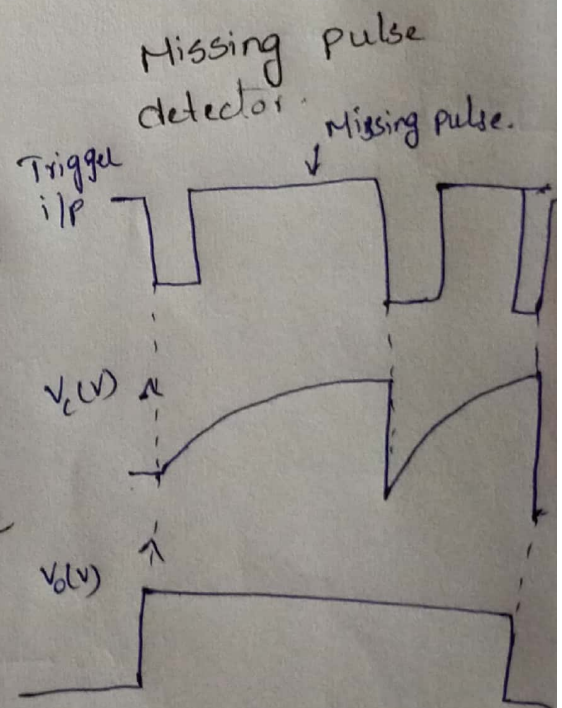 Missing pulse
detector.
Missing pulse.
Trigger
i/p
Vc(V)
Vo(V)